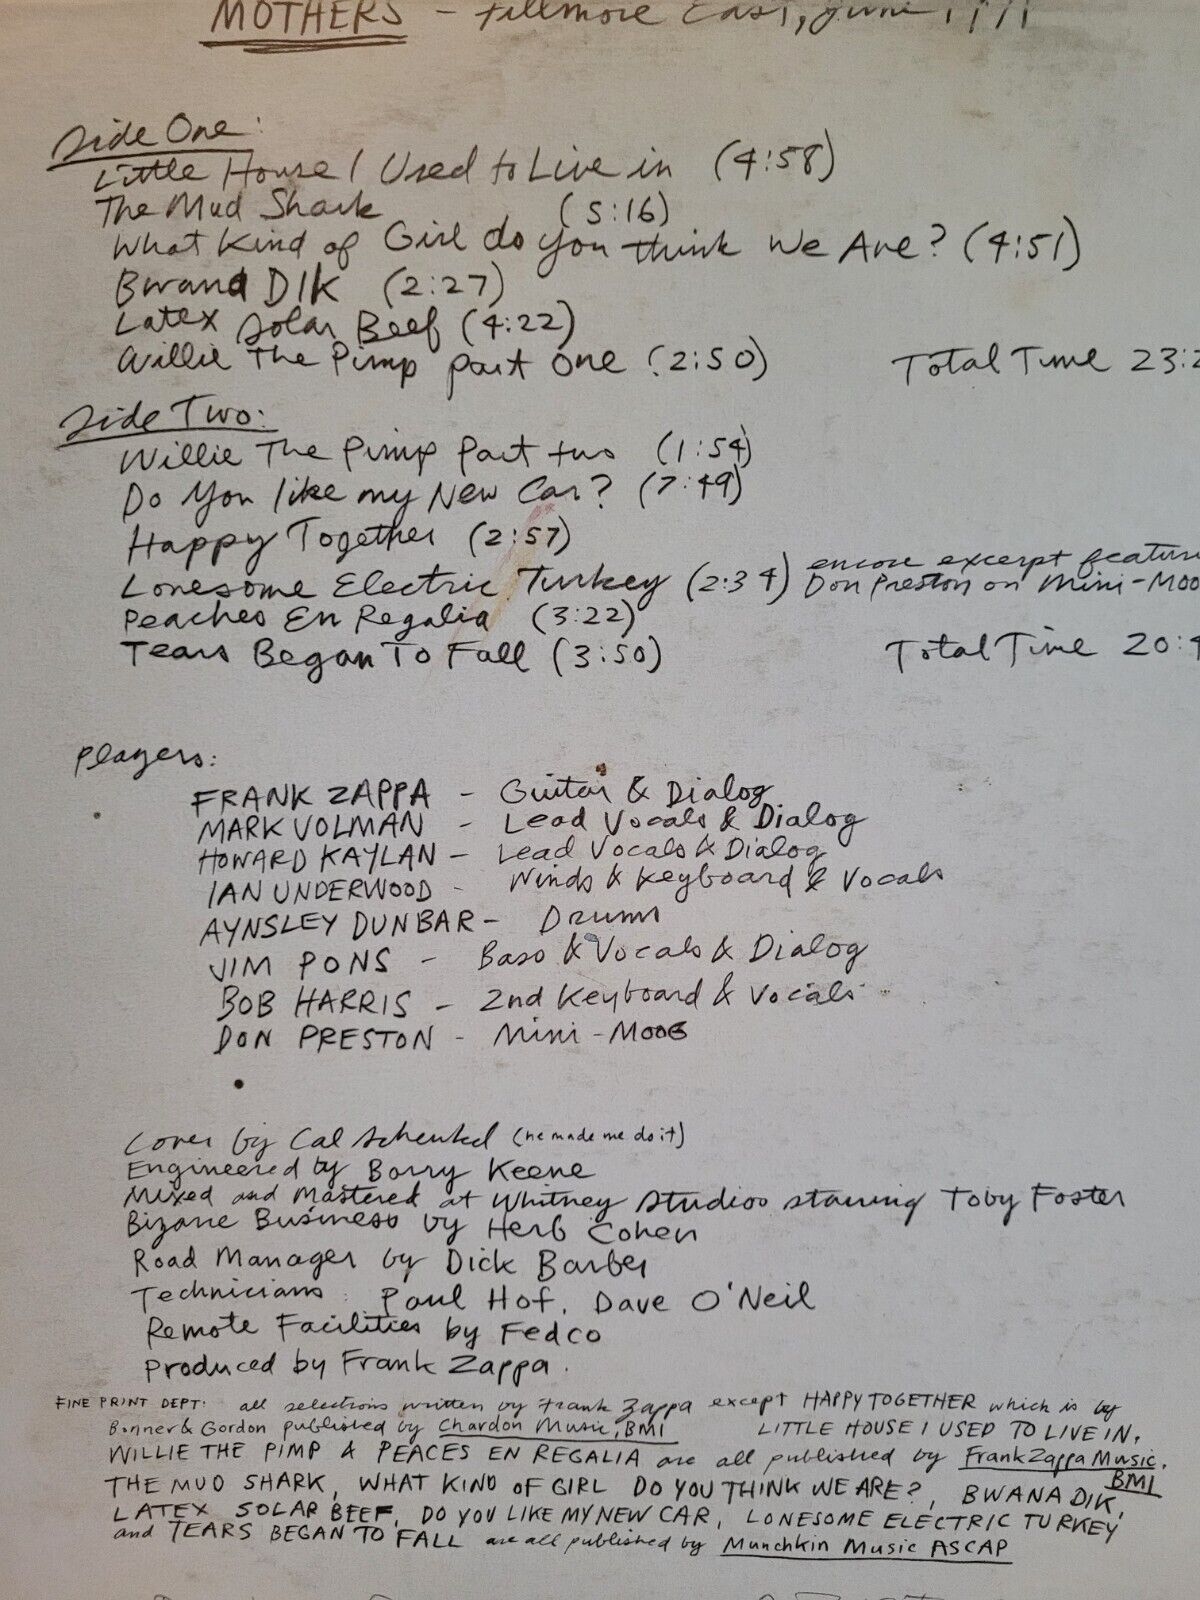 MOTHERS - Fillmore East, June 1971
Side One:
Little House I Used to Live in (4:58)
The Mud Shark (5:16)
What Kind of Girl do you think We Are? (4:51)
Bwana DIK (2:27)
Latex Solar Beef (4:22)
Willie The Pimp part One (2:50) Total Time 23:2
Side Two:
Willie The Pimp Part two (1:54)
Do You like my New Car? (7:49)
Happy Together (2:57)
Lonesome Electric Turkey (2:34) encore excerpt featurin
Don Preston on Mini-Moo
Peaches En Regalia (3:22)
Tears Began To Fall (3:50) Total Time 20:4
players:
FRANK ZAPPA - Guitar & Dialog
MARK VOLMAN - Lead Vocals & Dialog
HOWARD KAYLAN - Lead Vocals & Dialog
IAN UNDERWOOD - Winds & Keyboard & Vocals
AYNSLEY DUNBAR - Drums
JIM PONS - Bass & Vocals & Dialog
BOB HARRIS - 2nd Keyboard & Vocals
DON PRESTON - Mini-MOOG
Cover by Cal Schenkel (he made me do it)
Engineered by Barry Keene
Mixed and Mastered at Whitney Studios starring Toby Foster
Bizarre Business by Herb Cohen
Road Manager by Dick Barber
Technicians: Paul Hof, Dave O'Neil
Remote Facilities by Fedco
Produced by Frank Zappa.
FINE PRINT DEPT: all selections written by Frank Zappa except HAPPY TOGETHER which is by
Bonner & Gordon published by Chardon Music, BMI LITTLE HOUSE I USED TO LIVE IN,
WILLIE THE PIMP & PEACES EN REGALIA are all published by Frank Zappa Music,
BMI
THE MUD SHARK, WHAT KIND OF GIRL DO YOU THINK WE ARE?, BWANA DIK,
LATEX SOLAR BEEF, DO YOU LIKE MY NEW CAR, LONESOME ELECTRIC TURKEY
and TEARS BEGAN TO FALL are all published by Munchkin Music ASCAP